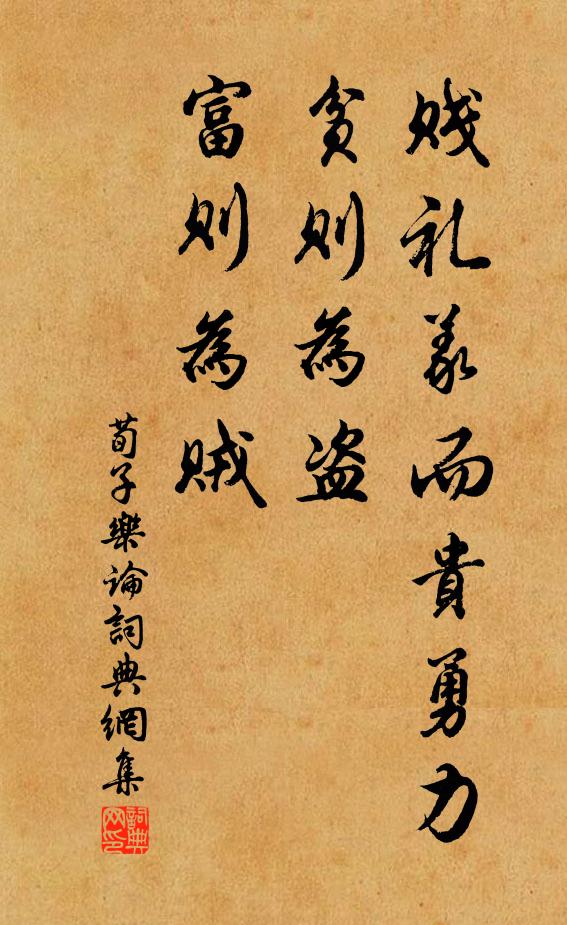 贱礼义而貴勇力
贫则為盗
富则為贼
荀子樂论詞典網集
詞典
网印